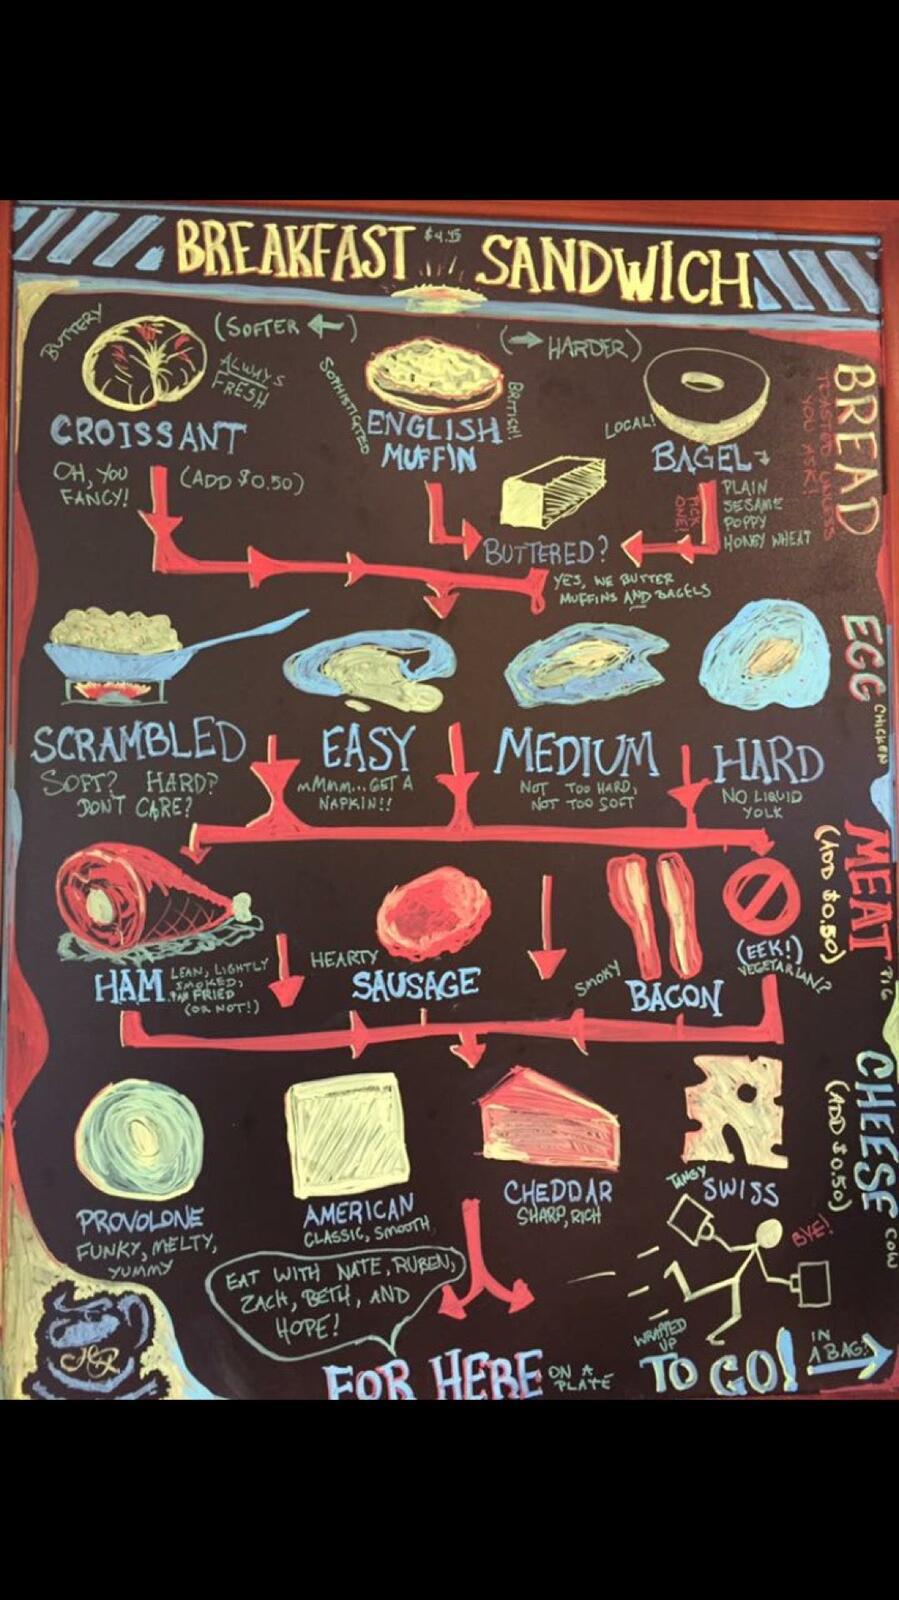 BREAKFAST $4.95 SANDWICH
BUTTERY
(SOFTER ←)
ALWAYS
FRESH
SOPHISTICATED
BRITISH!
(→ HARDER)
LOCAL!
CROISSANT
OH, YOU
FANCY!
(ADD $0.50)
ENGLISH
MUFFIN
BAGEL
PICK
ONE!
PLAIN
SESAME
POPPY
HONEY WHEAT
BREAD
TOASTED UNLESS
YOU ASK!
BUTTERED?
YES, WE BUTTER
MUFFINS AND BAGELS
EGG
CHICKEN
SCRAMBLED
SOFT? HARD?
DON'T CARE?
EASY
MMMM...GET A
NAPKIN!!
MEDIUM
NOT TOO HARD,
NOT TOO SOFT
HARD
NO LIQUID
YOLK
MEAT
(ADD $0.50)
PIG
HAM
LEAN, LIGHTLY
SMOKED,
PAN FRIED
(OR NOT!)
HEARTY
SAUSAGE
SMOKY
BACON
(EEK!)
VEGETARIAN?
CHEESE
(ADD $0.50)
COW
PROVOLONE
FUNKY, MELTY,
YUMMY
AMERICAN
CLASSIC, SMOOTH
CHEDDAR
SHARP, RICH
TANGY
SWISS
BYE!
EAT WITH NATE, RUBEN,
ZACH, BETH, AND
HOPE!
FOR HERE
ON A
PLATE
WRAPPED
UP
TO GO!
IN
A BAG!